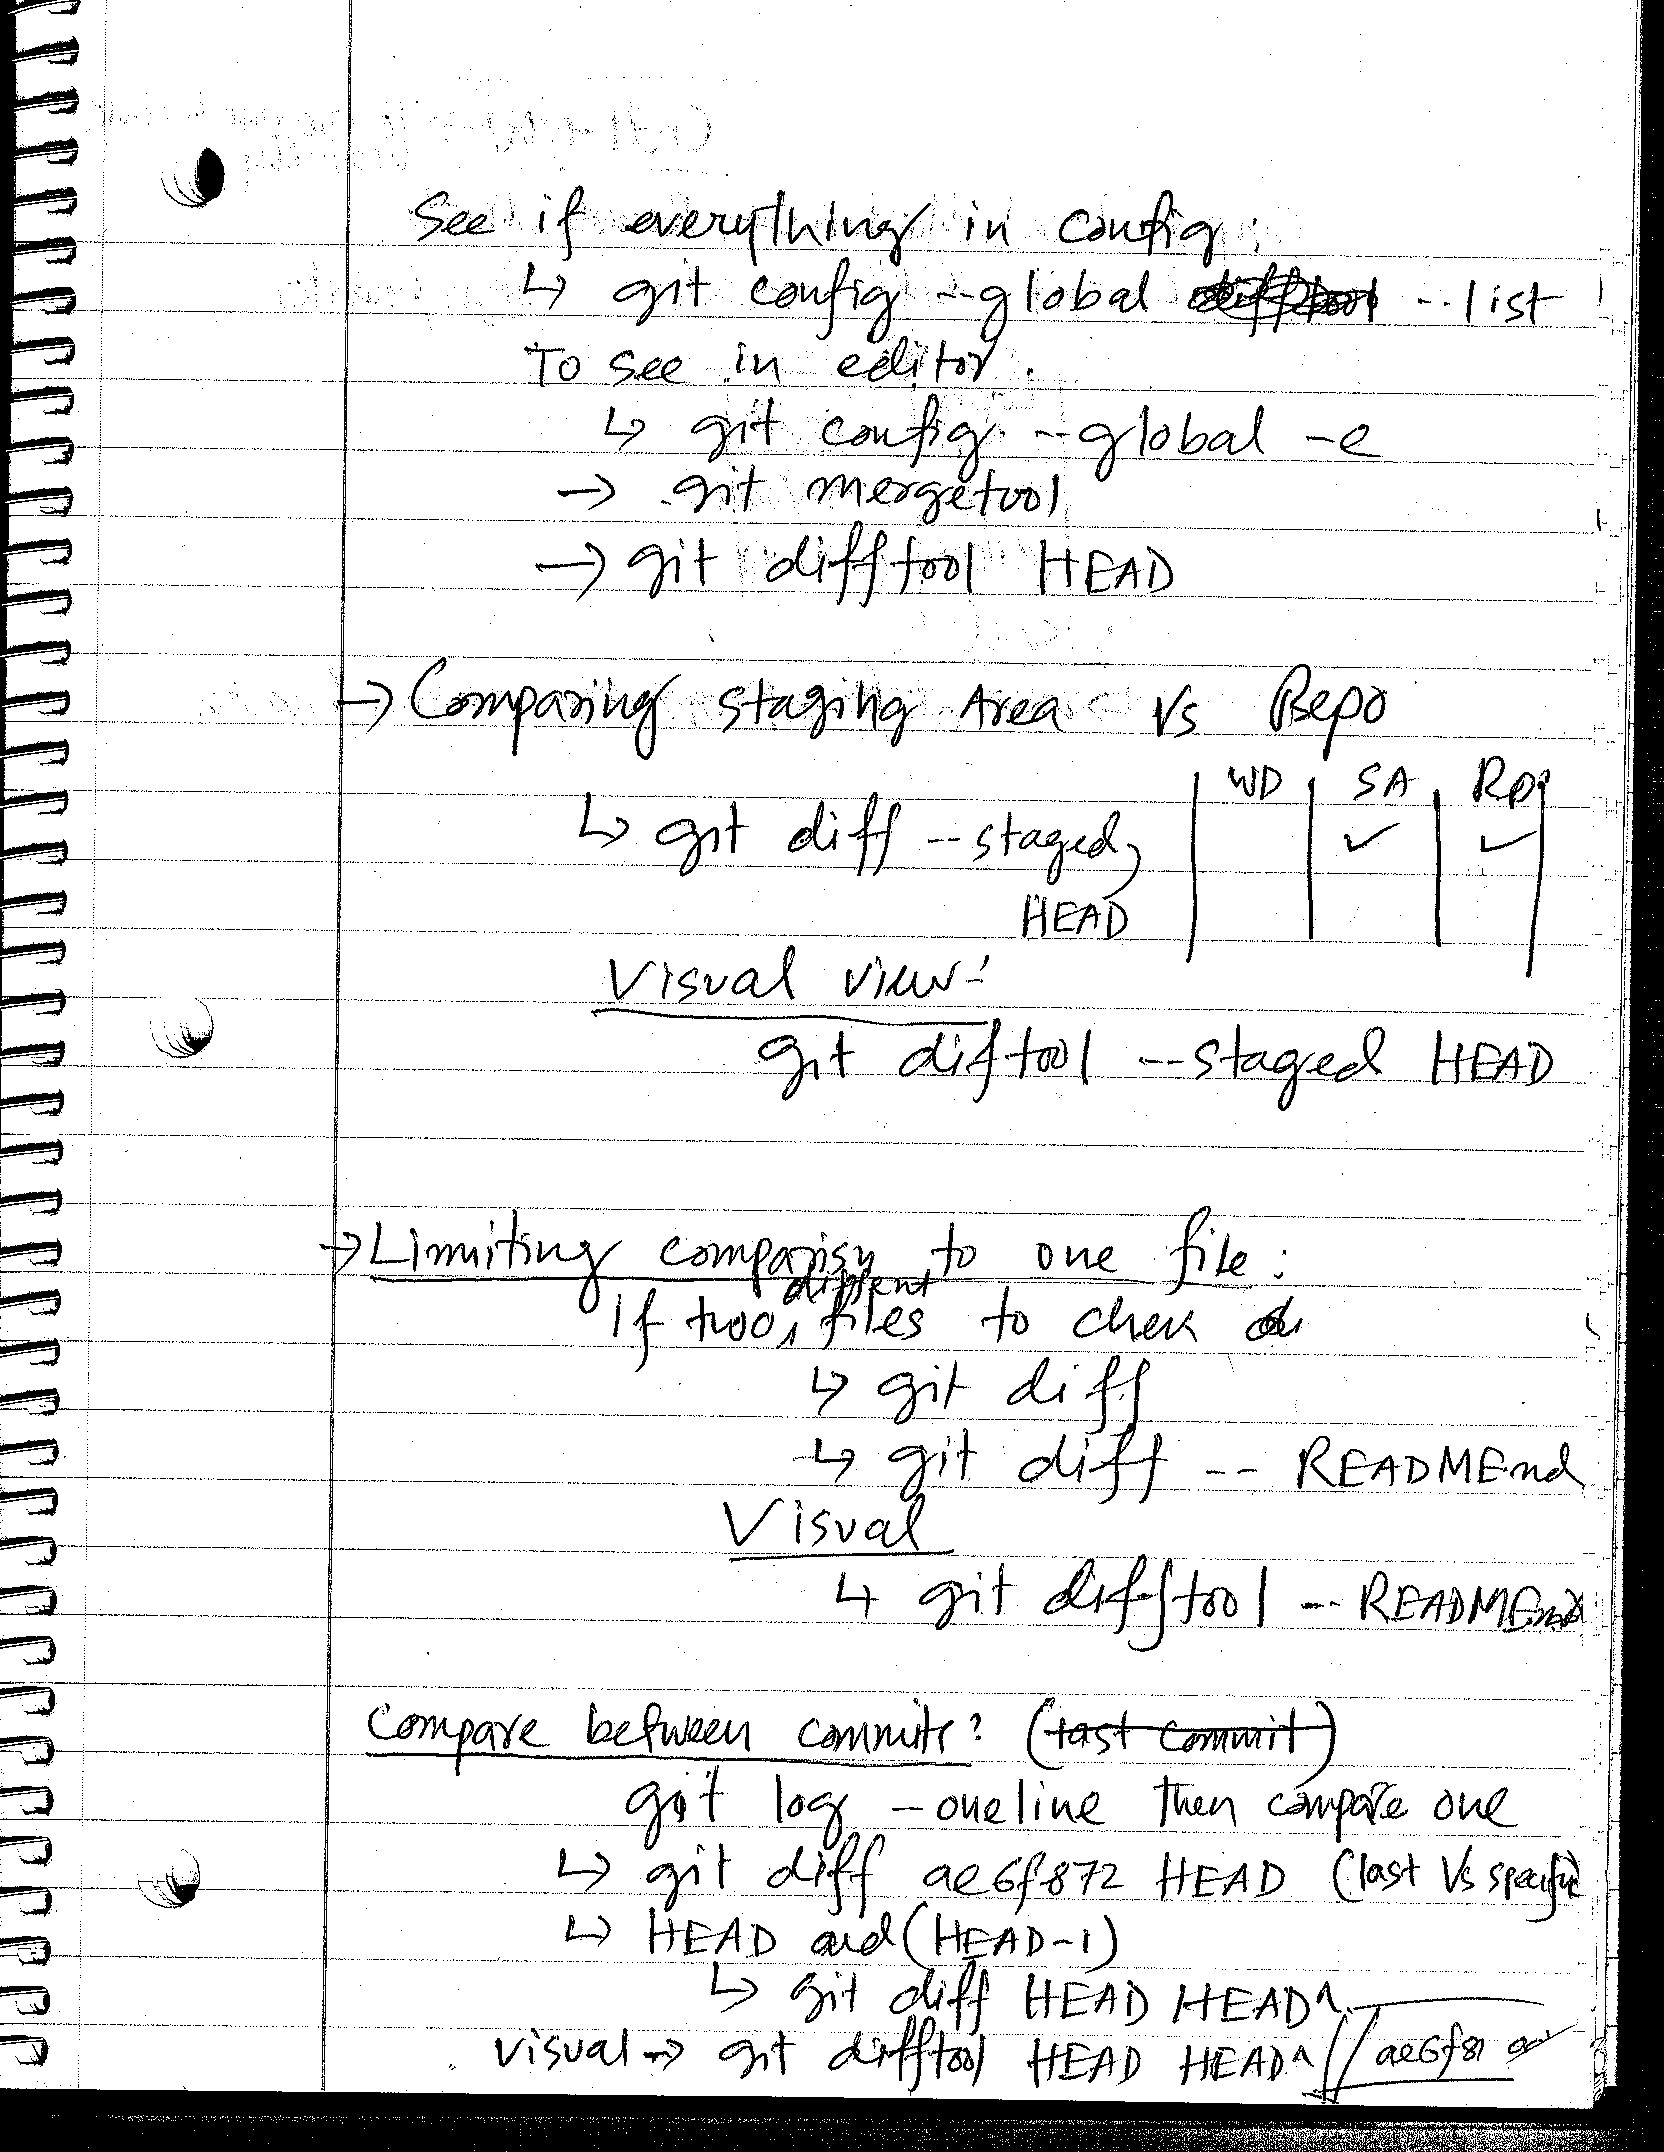 See if everything in config:
↳ git config --global difftool --list
To see in editor.
↳ git config --global -e
→ git mergetool
→ git difftool HEAD
→ Comparing staging Area Vs Repo
WD SA Rp
↳ git diff --staged, ✓ ✓
HEAD
Visual view:
git diftool --staged HEAD
→ Limiting comparisn to one file:
If two different files to check
↳ git diff
↳ git diff -- READMEmd
Visual
↳ git difftool -- READMEmd
Compare between commits: (last commit)
git log -oneline then compare one
↳ git diff ae6f872 HEAD (last Vs specific)
↳ HEAD and (HEAD-1)
↳ git diff HEAD HEAD^
visual → git difftool HEAD HEAD^ // ae6f81